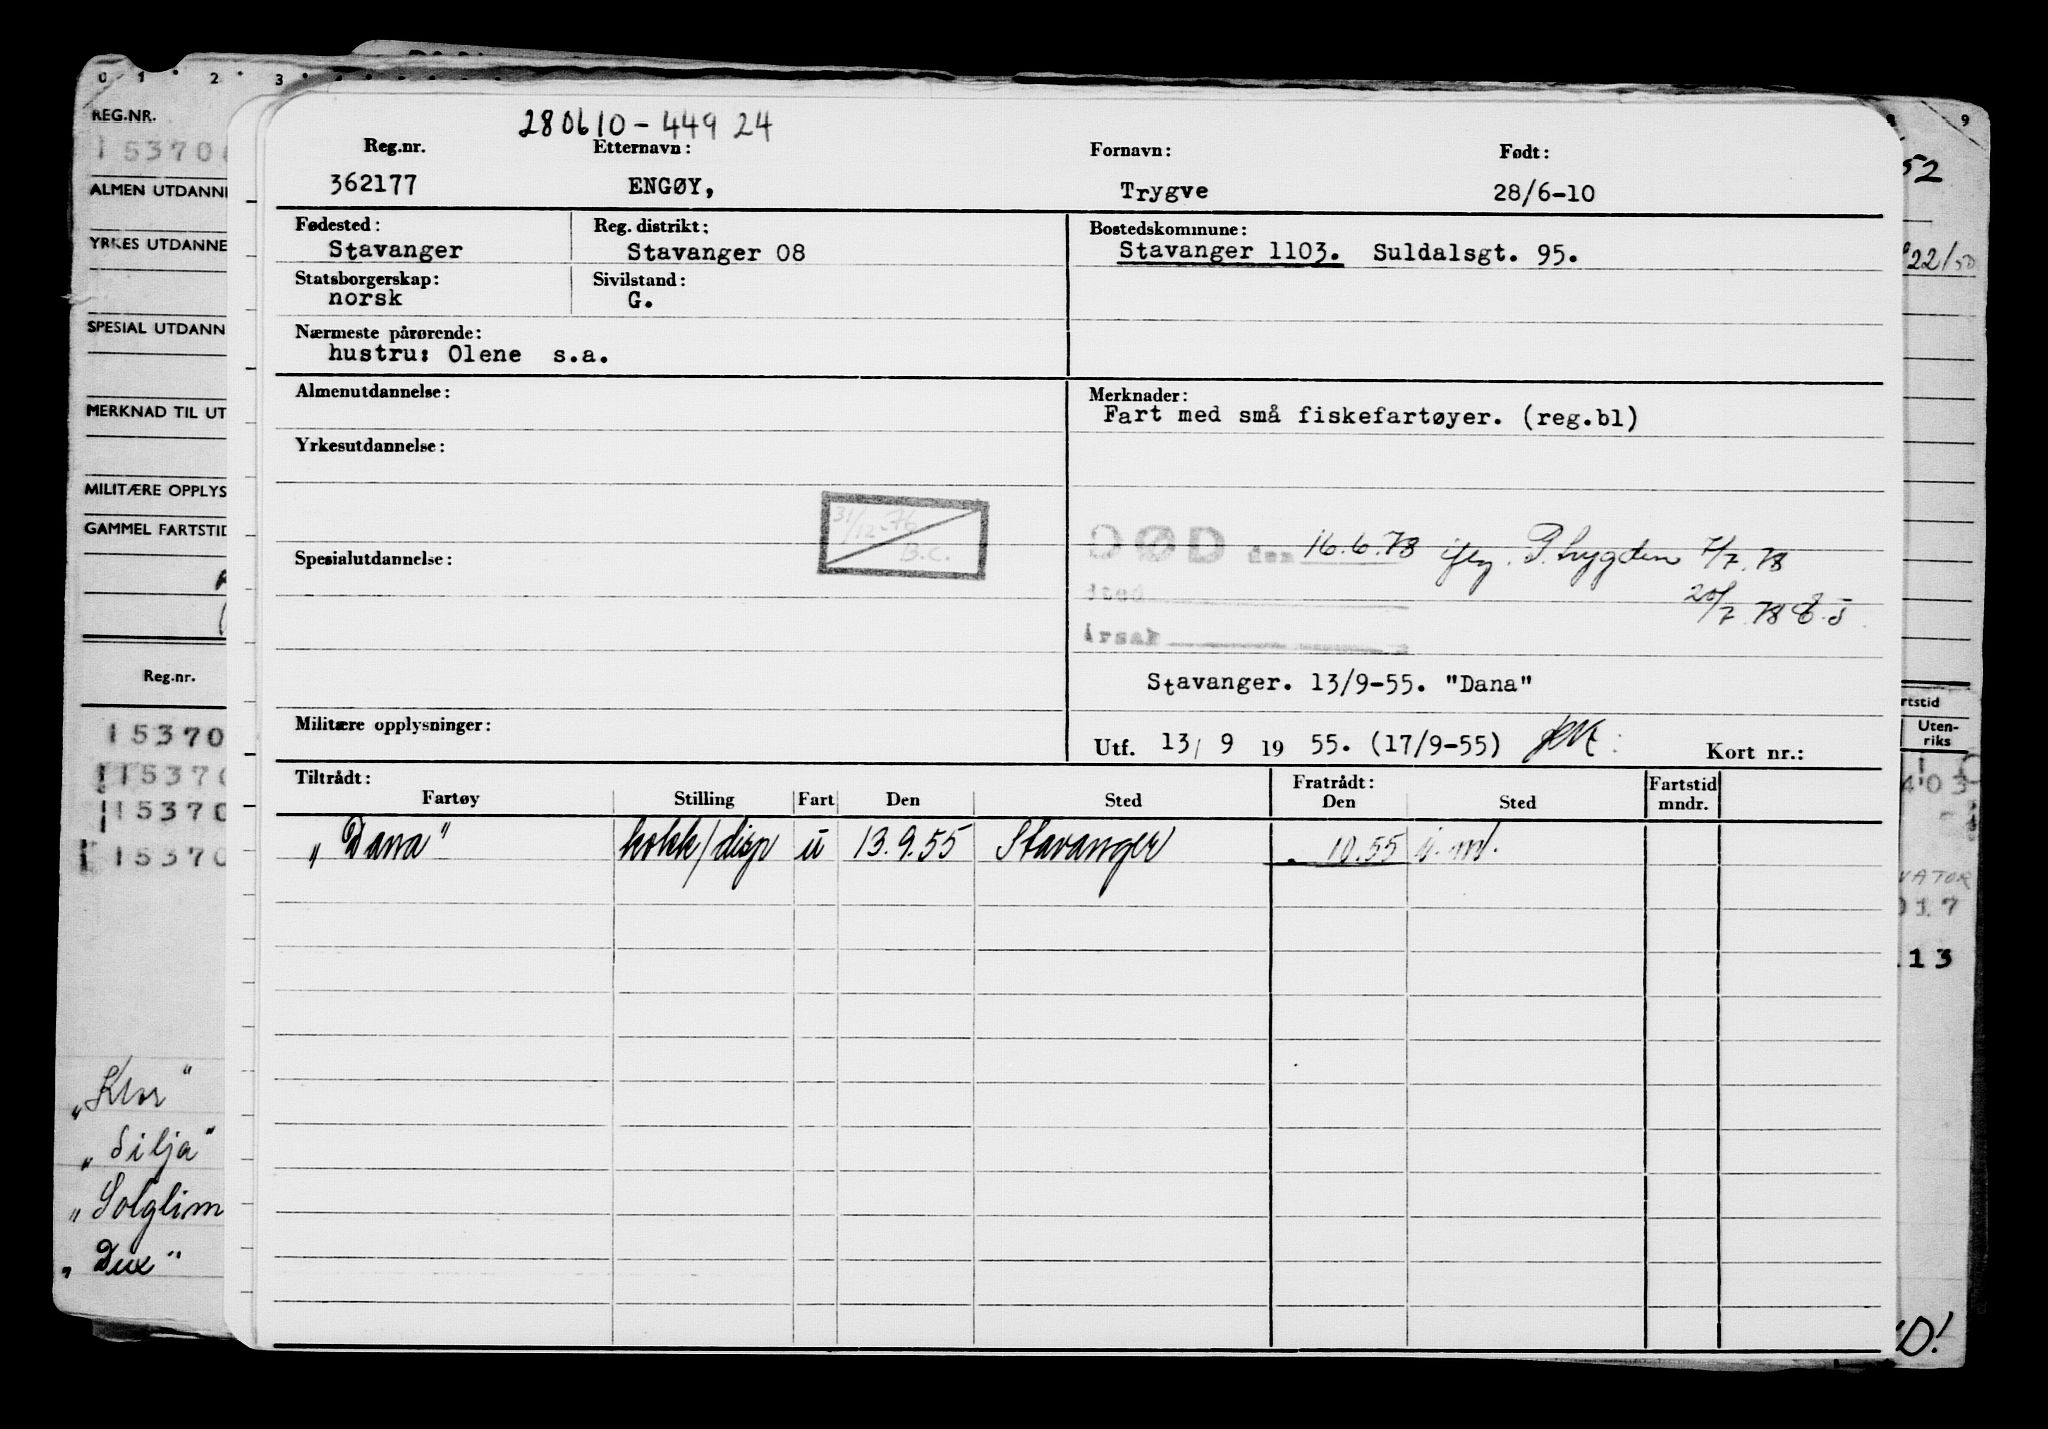 0 1 2 3
9
REG.NR.
15370
ALMEN UTDANNE
YRKES UTDANNE
SPESIAL UTDANN
MERKNAD TIL UT
MILITÆRE OPPLYS
GAMMEL FARTSTID
Reg.nr.
15370
15370
15370
15370
„Klar"
„Silja"
„Solglim
„Dux"
280610-449 24
Reg.nr. Etternavn: Fornavn: Født:
362177 ENGØY, Trygve 28/6-10
Fødested: Reg. distrikt: Bostedskommune:
Stavanger Stavanger 08 Stavanger 1103. Suldalsgt. 95.
Statsborgerskap: Sivilstand:
norsk G.
Nærmeste pårørende:
hustru: Olene s.a.
Almenutdannelse: Merknader:
Fart med små fiskefartøyer. (reg.bl)
Yrkesutdannelse:
31/12-76
B.C.
DØD den 16.6.78 iflg. P. trygden 7/7.78
Spesialutdannelse:
sted
20/7.78
årsak
Stavanger. 13/9-55. "Dana"
Militære opplysninger:
Utf. 13/ 9 19 55. (17/9-55) Kort nr.:
Tiltrådt: Fratrådt: Fartstid
Fartøy Stilling Fart Den Sted Den Sted mndr.
„Dana" kokk/disp u 13.9.55 Stavanger . 10.55 u.m.
52
22/50
rtstid
Uten-
riks
403
VATOR
017
113
D!